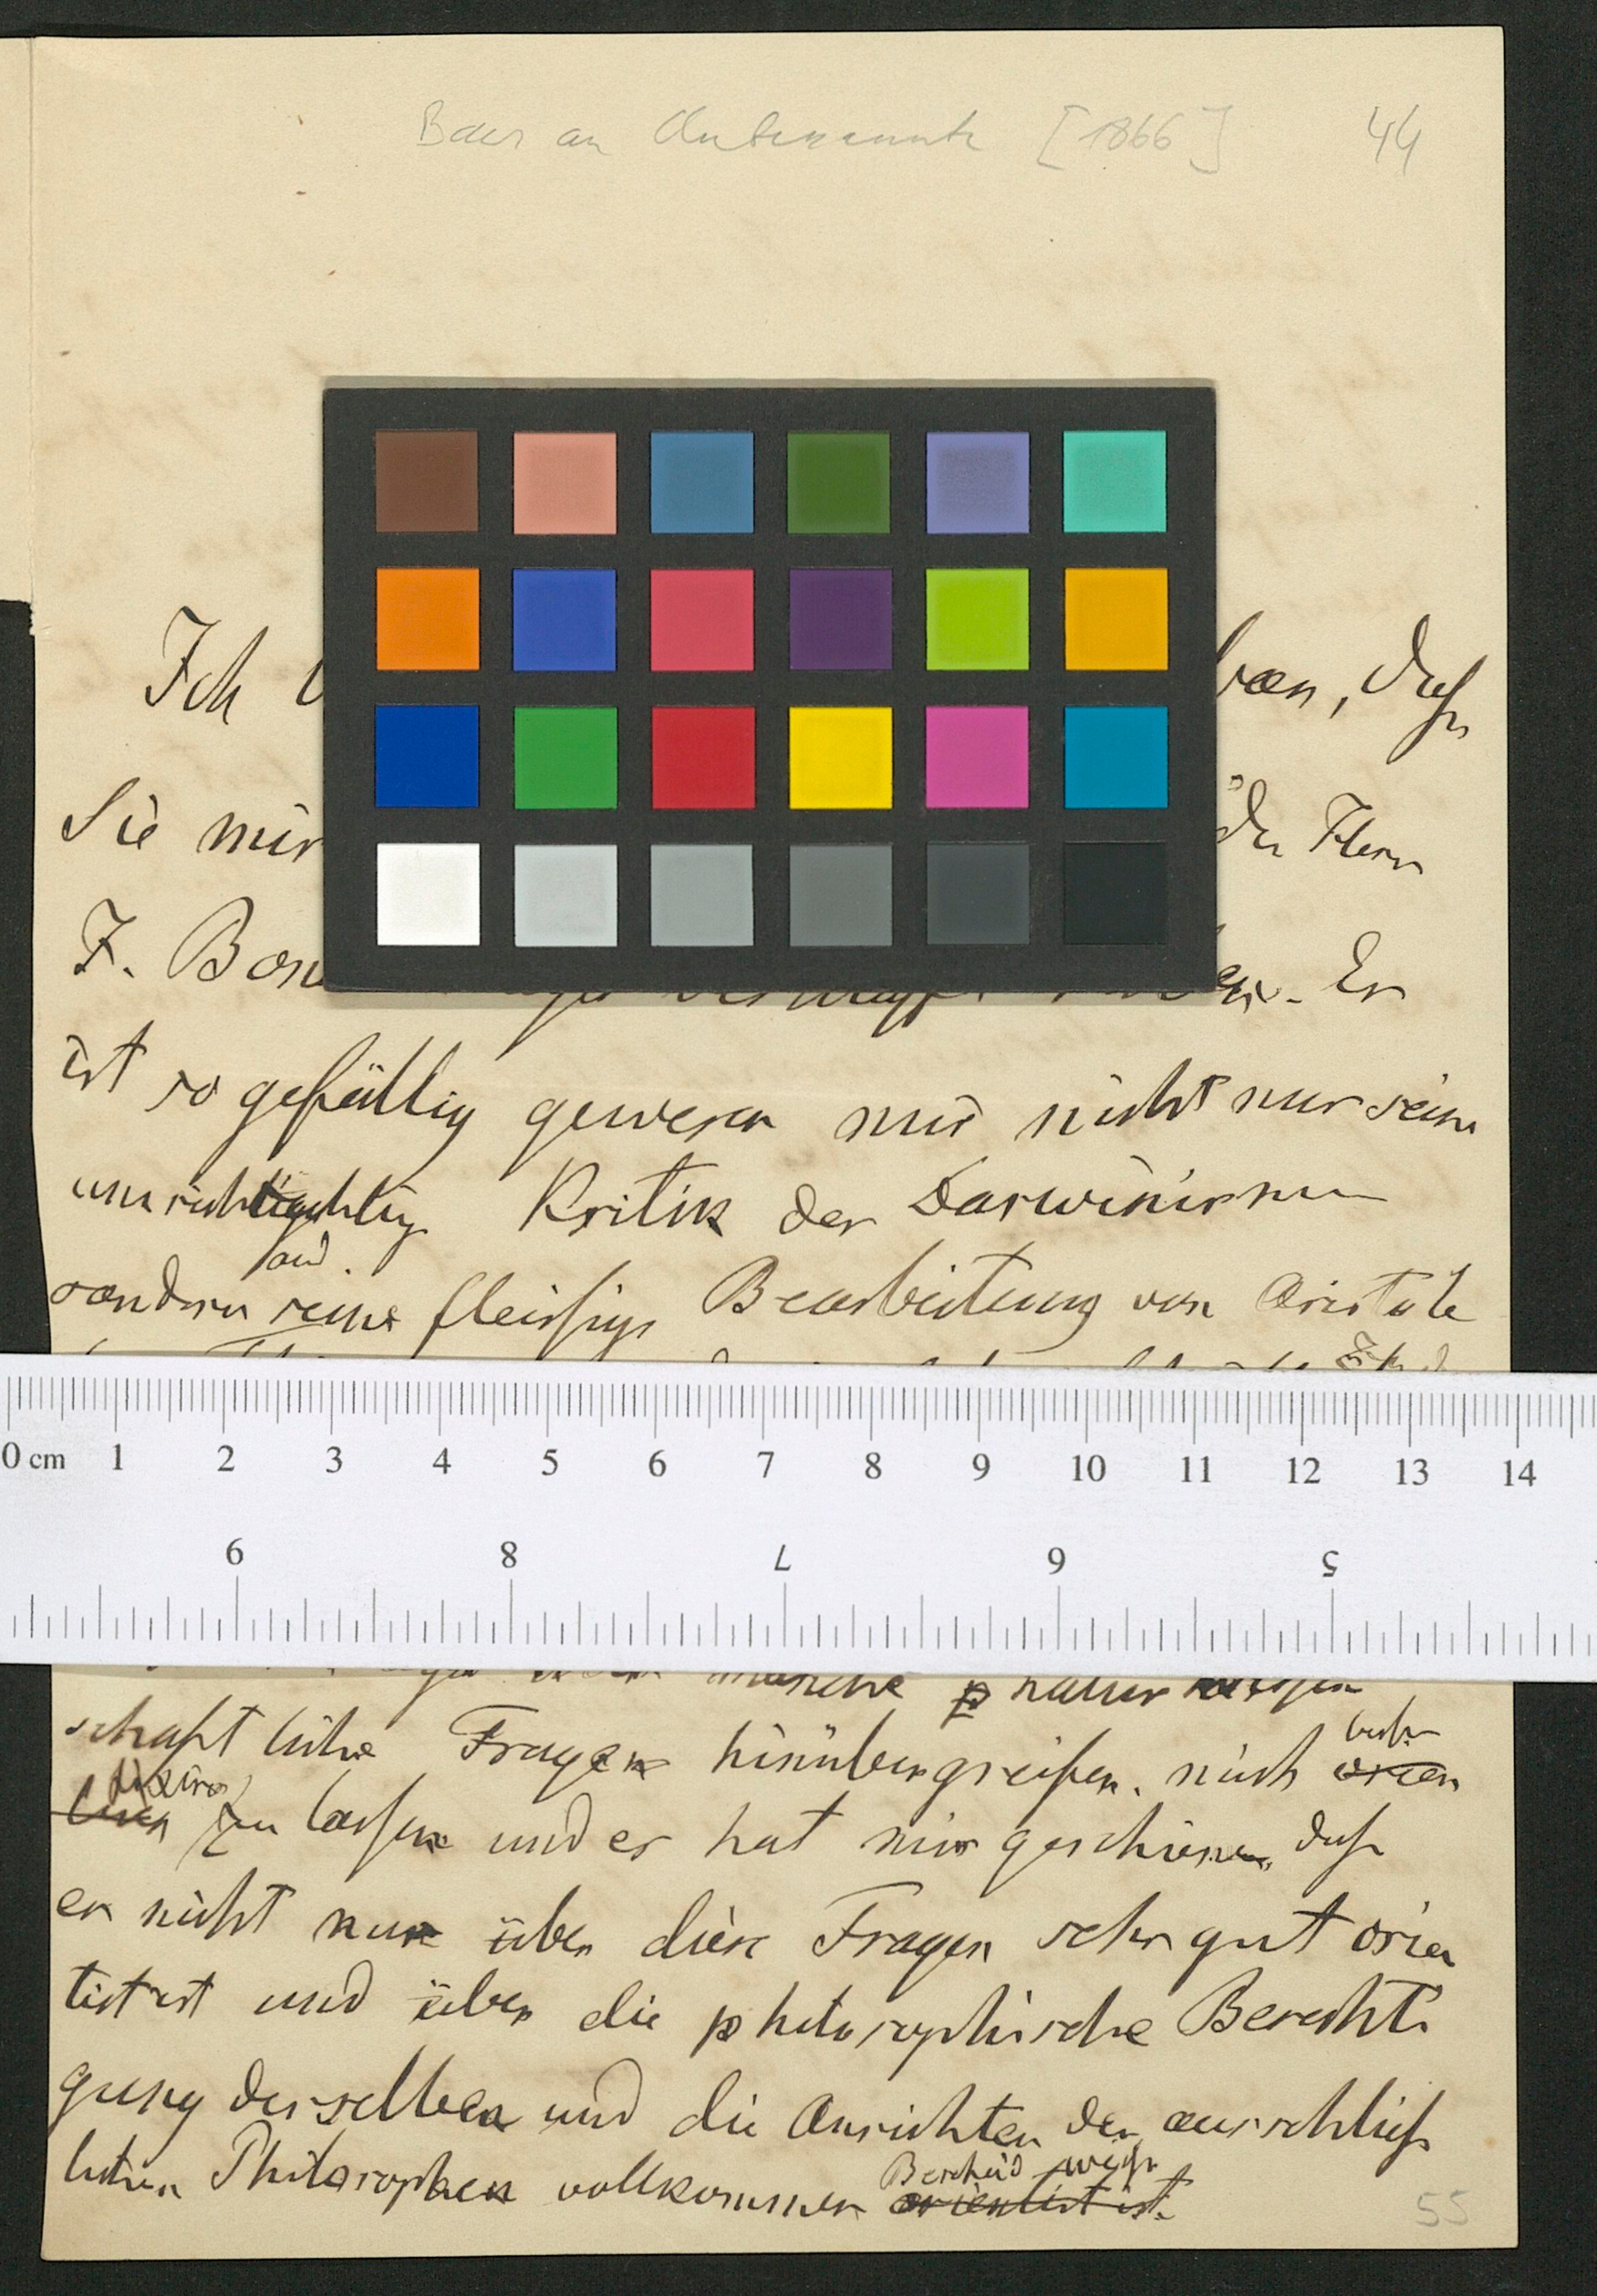 Baer an Unbekannte [1866] 44
Ich ben, daß
Sie mir Herr
F. Er
ist so gefällig gewesen mir nicht nur seine
Kritik des Darwinismus
auch
sondern seine fleissige Bearbeitung von Aristote
0 cm 1 2 3 4 5 6 7 8 9 10 11 12 13 14
9 8 7 6 5
manche p naturwissen
schaftliche Fragen hinübergreifen. mich orien
zu lassen und es hat mir geschienen, daß
er nicht nur über diese Fragen sehr gut orien
tirt ist und über die philosophische Berechti
gung derselben und die Ansichten der ausschließ
Bescheid weiß
lichen Philosophen vollkommen orientirt ist.
55